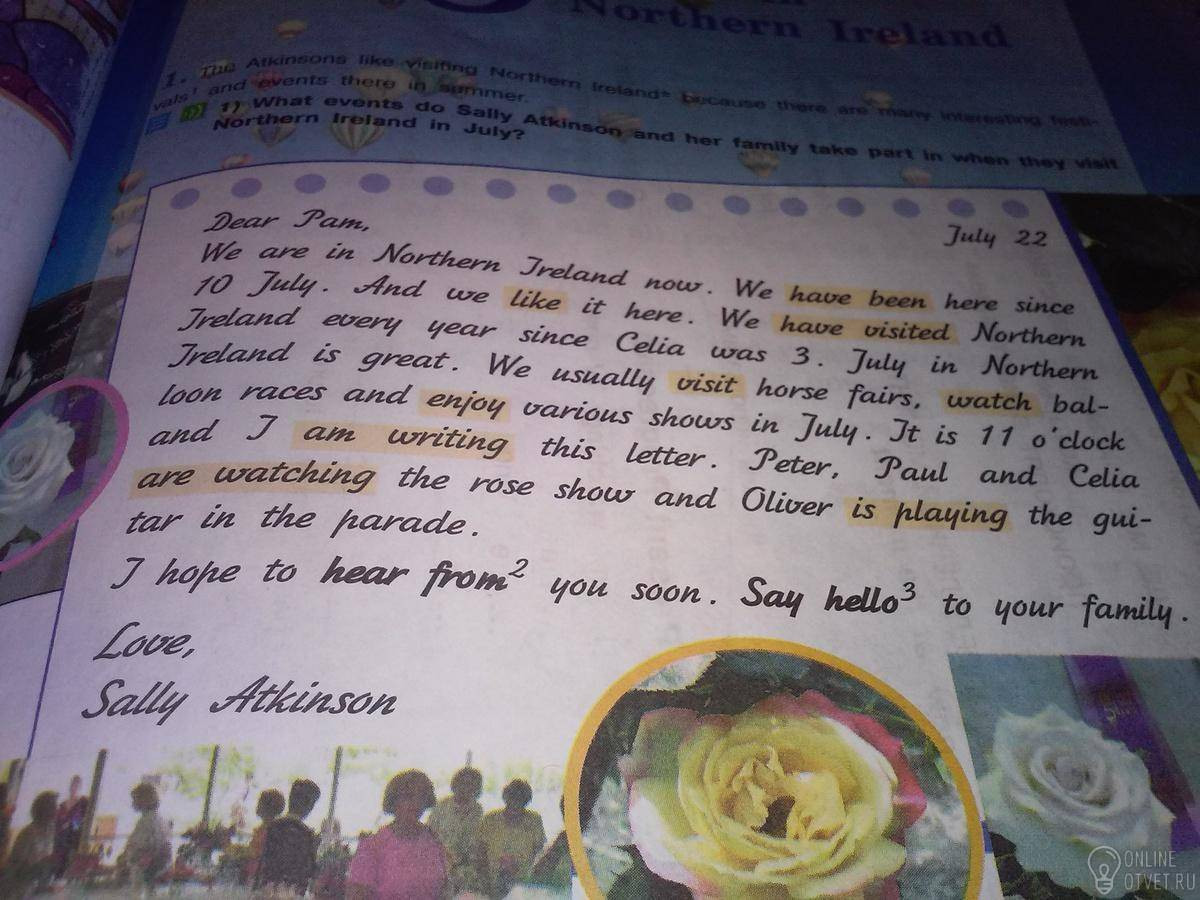 in
Northern Ireland
1. The Atkinsons like visiting Northern Ireland* because there are many interesting festi-
vals¹ and events there in summer.
1) What events do Sally Atkinson and her family take part in when they visit
Northern Ireland in July?
Dear Pam,
July 22
We are in Northern Ireland now. We have been here since
10 July. And we like it here. We have visited Northern
Ireland every year since Celia was 3. July in Northern
Ireland is great. We usually visit horse fairs, watch bal-
loon races and enjoy various shows in July. It is 11 o'clock
and I am writing this letter. Peter, Paul and Celia
are watching the rose show and Oliver is playing the gui-
tar in the parade.
I hope to hear from² you soon. Say hello³ to your family.
Love,
Sally Atkinson
ONLINE
OTVET.RU